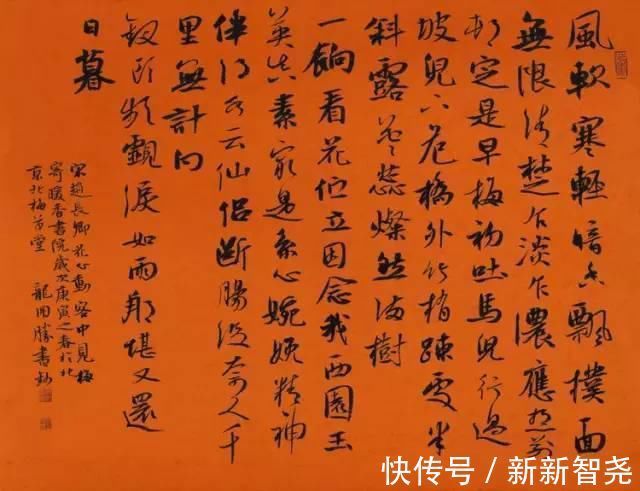 風軟寒輕暗香飄撲面
無限清楚乍淡乍濃應想前
村定是早梅初吐馬兒行過
坡兒下危橋外竹梢疎處半
斜露花蕊燦然滿樹
一餉看花伫立因念我西園玉
英真素最是系心婉娩精神
伴得水云仙侣断腸没奈人千
里無計向
釵頭頻覷淚如雨那堪又還
日暮
宋趙長卿花心動客中見梅
寄暖香書院歲次庚寅之春於北
京北梅草堂 龍開勝書
快传号 / 新新智尧